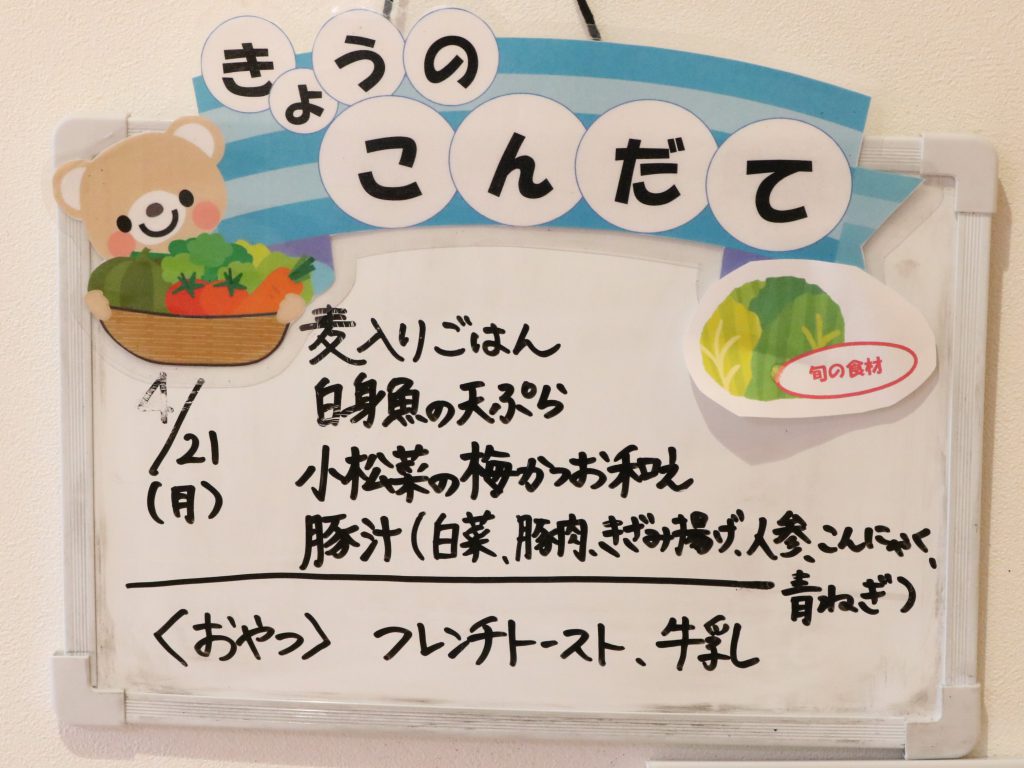 きょうの
こんだて
旬の食材
4/21
(月)
麦入りごはん
白身魚の天ぷら
小松菜の梅かつお和え
豚汁(白菜、豚肉、きざみ揚げ、人参、こんにゃく、
青ねぎ)
〈おやつ〉 フレンチトースト、牛乳